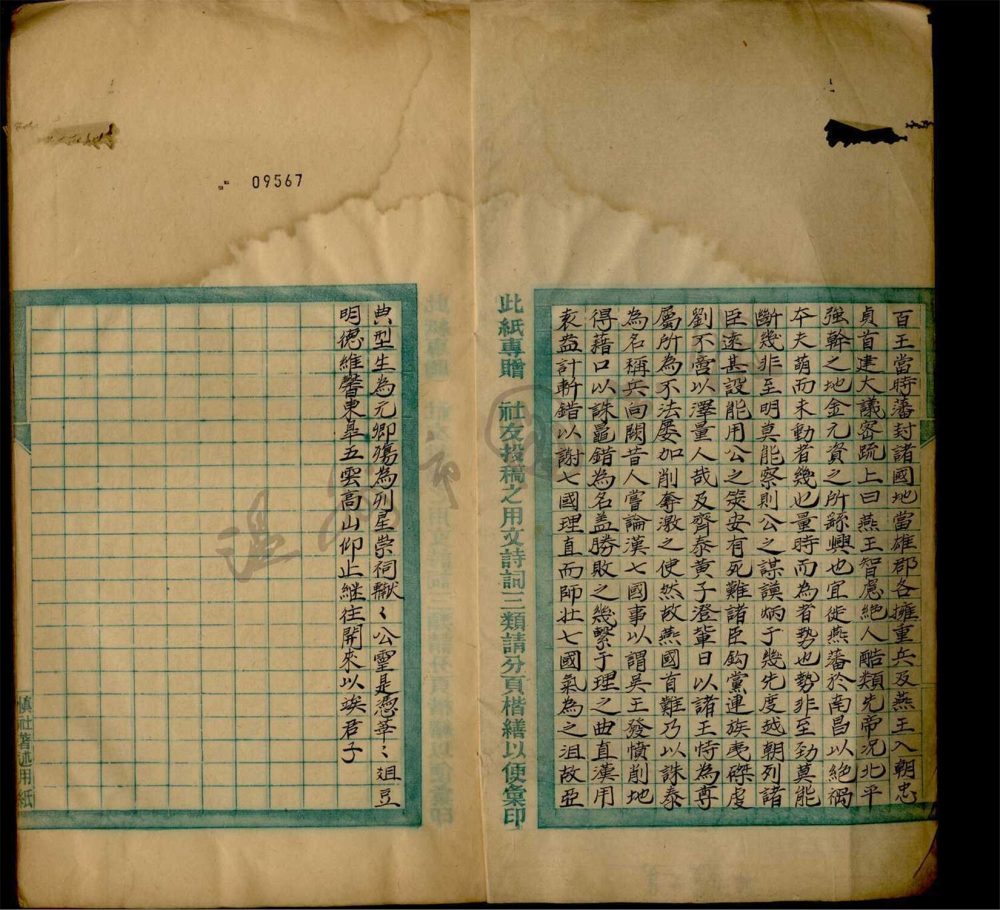 百王當時藩封諸國地當雄郡各擁重兵及燕王入朝忠
貞首建大議密疏上曰燕王智慮絕人酷類先帝况北平
強幹之地金元資之所繇興也宜徙燕藩於南昌以絕禍
夲夫萌而未動者幾也量時而為者势也勢非至勁莫能
断幾非至明莫能察則公之謀謨炳于幾先度越朝列諸
臣遠甚設能用公之筴安有死難諸臣鈎黨連族夷磔虔
劉不啻以澤量人哉及齊泰黄子澄軰日以諸王恃為尊
屬所為不法屡加削奪激之使然故燕國首難乃以誅泰
為名稱兵向闕昔人嘗論漢七國事以謂吴王發憤削地
得藉口以誅鼂錯為名盖勝敗之幾繫于理之曲直漢用
袁盎計斬錯以謝七國理直而師壮七國氣為之沮故亞
此紙專贈 社友投稿之用文詩詞三類請分頁楷繕以便彙印
09567
典型生為元卿殤為列星崇祠巘〻公靈是憑莘〻俎豆
明德維馨東皐五雲高山仰止継往開來以竢君子
慎社著述用紙
溫 市